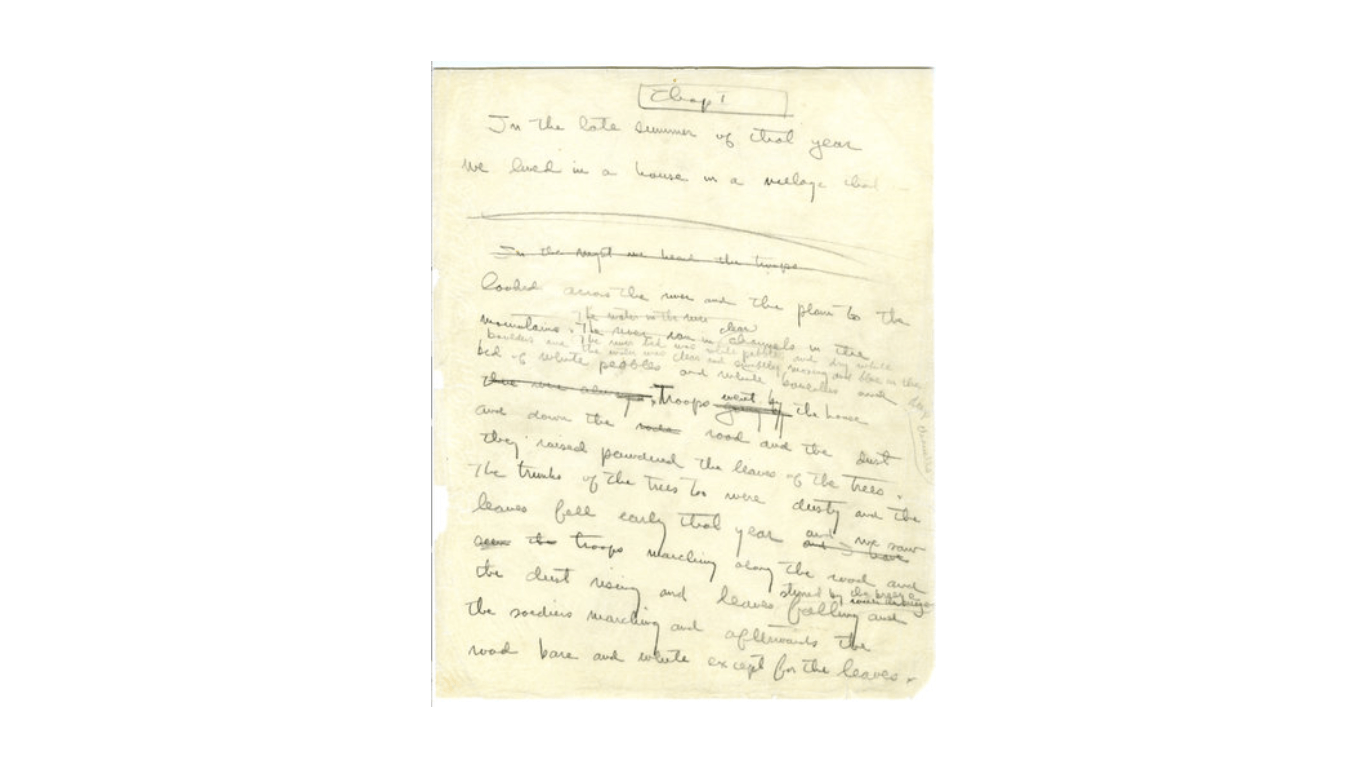 Chap I
In the late summer of that year
we lived in a house in a village that
In the night we heard the troops
looked across the river and the plain to the
The water in the river
mountains. The river ran in clear channels in the
boulders and The river bed was white pebbles and dry white
the water was clear and swiftly moving and blue in the
bed of white pebbles and white boulders and
there were always Troops went by the house
and down the road and the dust
they raised powdered the leaves of the trees.
The trunks of the trees too were dusty and the
leaves fell early that year and we saw
and
seen the troops marching along the road and
the dust rising and leaves stirred by the breeze
falling and
the soldiers marching and afterwards the
road bare and white except for the leaves.